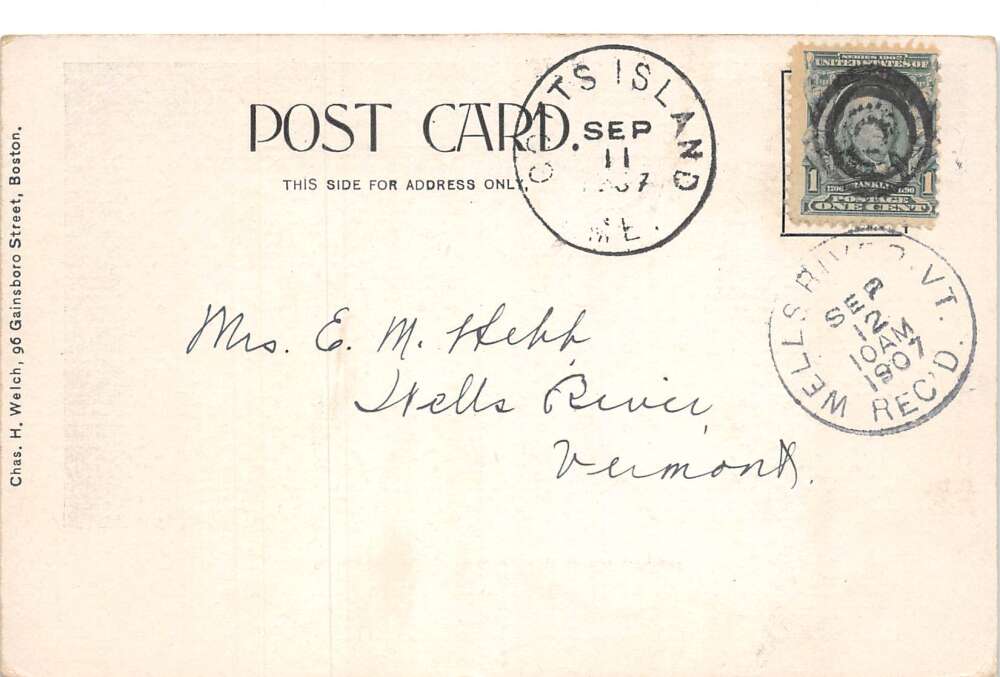 POST CARD.
THIS SIDE FOR ADDRESS ONLY.
COTTS ISLAND
SEP
11
1907
ME.
SERIES 1902
UNITED STATES OF
1 FRANKLIN 1
POSTAGE
ONE CENT
WELLS RIVER, VT.
SEP
12
10 AM
1907
REC'D.
Mrs. E. M. Hebb
Wells River,
Vermont.
Chas. H. Welch, 96 Gainsboro Street, Boston.